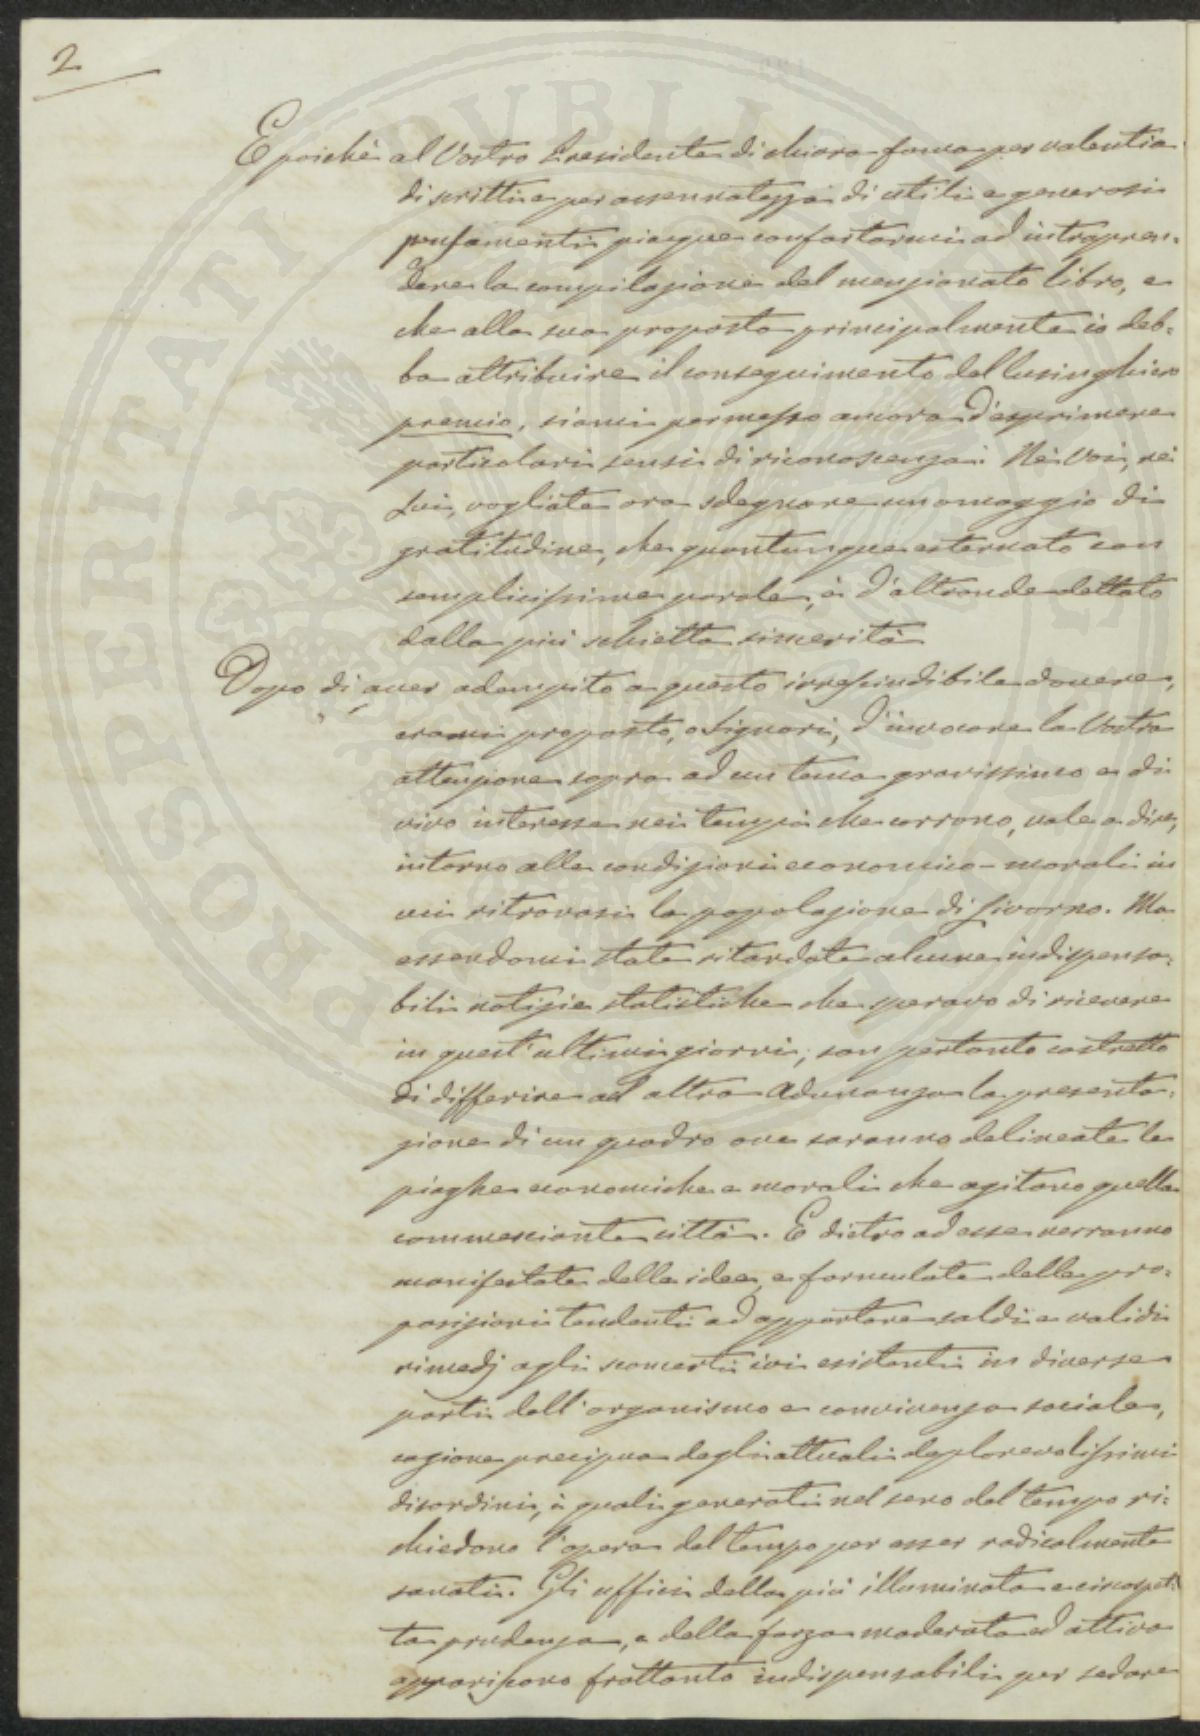 2
E poichè al Vostro Presidente di chiara fama per valentia
di scritti e per assennatezza di utili e generosi
pensamenti piacque confortarmi ad intrapren=
dere la compilazione del menzionato libro, e
che alla sua proposta principalmente io deb=
ba attribuire il conseguimento del lusinghiero
premio, siami permesso ancora d'esprimere
particolari sensi di riconoscenza. Nè Voi, nè
Lui, vogliate ora sdegnare un omaggio di
gratitudine, che quantunque esternato con
semplicissime parole, è d'altronde dettato
dalla più schietta sincerità
Dopo di aver adempito a questo irrescindibile dovere,
erami proposto, o Signori, d'invocare la Vostra
attenzione sopra ad un tema gravissimo e di
vivo interesse nei tempi che corrono, vale a dire,
intorno alle condizioni economico-morali in
cui ritrovasi la popolazione di Livorno. Ma
essendomi state ritardate alcune indispensa=
bili notizie statistiche che speravo di ricevere
in quest'ultimi giorni, son pertanto costretto
di differire ad altra Adunanza la presenta=
zione di un quadro ove saranno delineate le
piaghe economiche e morali che agitano quella
commerciante città. E dietro ad esse verranno
manifestate delle idee, e formulate delle pro=
posizioni tendenti ad apportare saldi e validi
rimedj agli sconcerti ivi esistenti in diverse
parti dell'organismo e convivenza sociale,
cagione precipua degli attuali deplorevolissimi
disordini, i quali generati nel seno del tempo ri=
chiedono l'opera del tempo per esser radicalmente
sanati. Gli uffici della più illuminata e circospet=
ta prudenza, e della forza moderata ed attiva
appariscono frattanto indispensabili per sedare
PROSPERITATI PUBLICAE